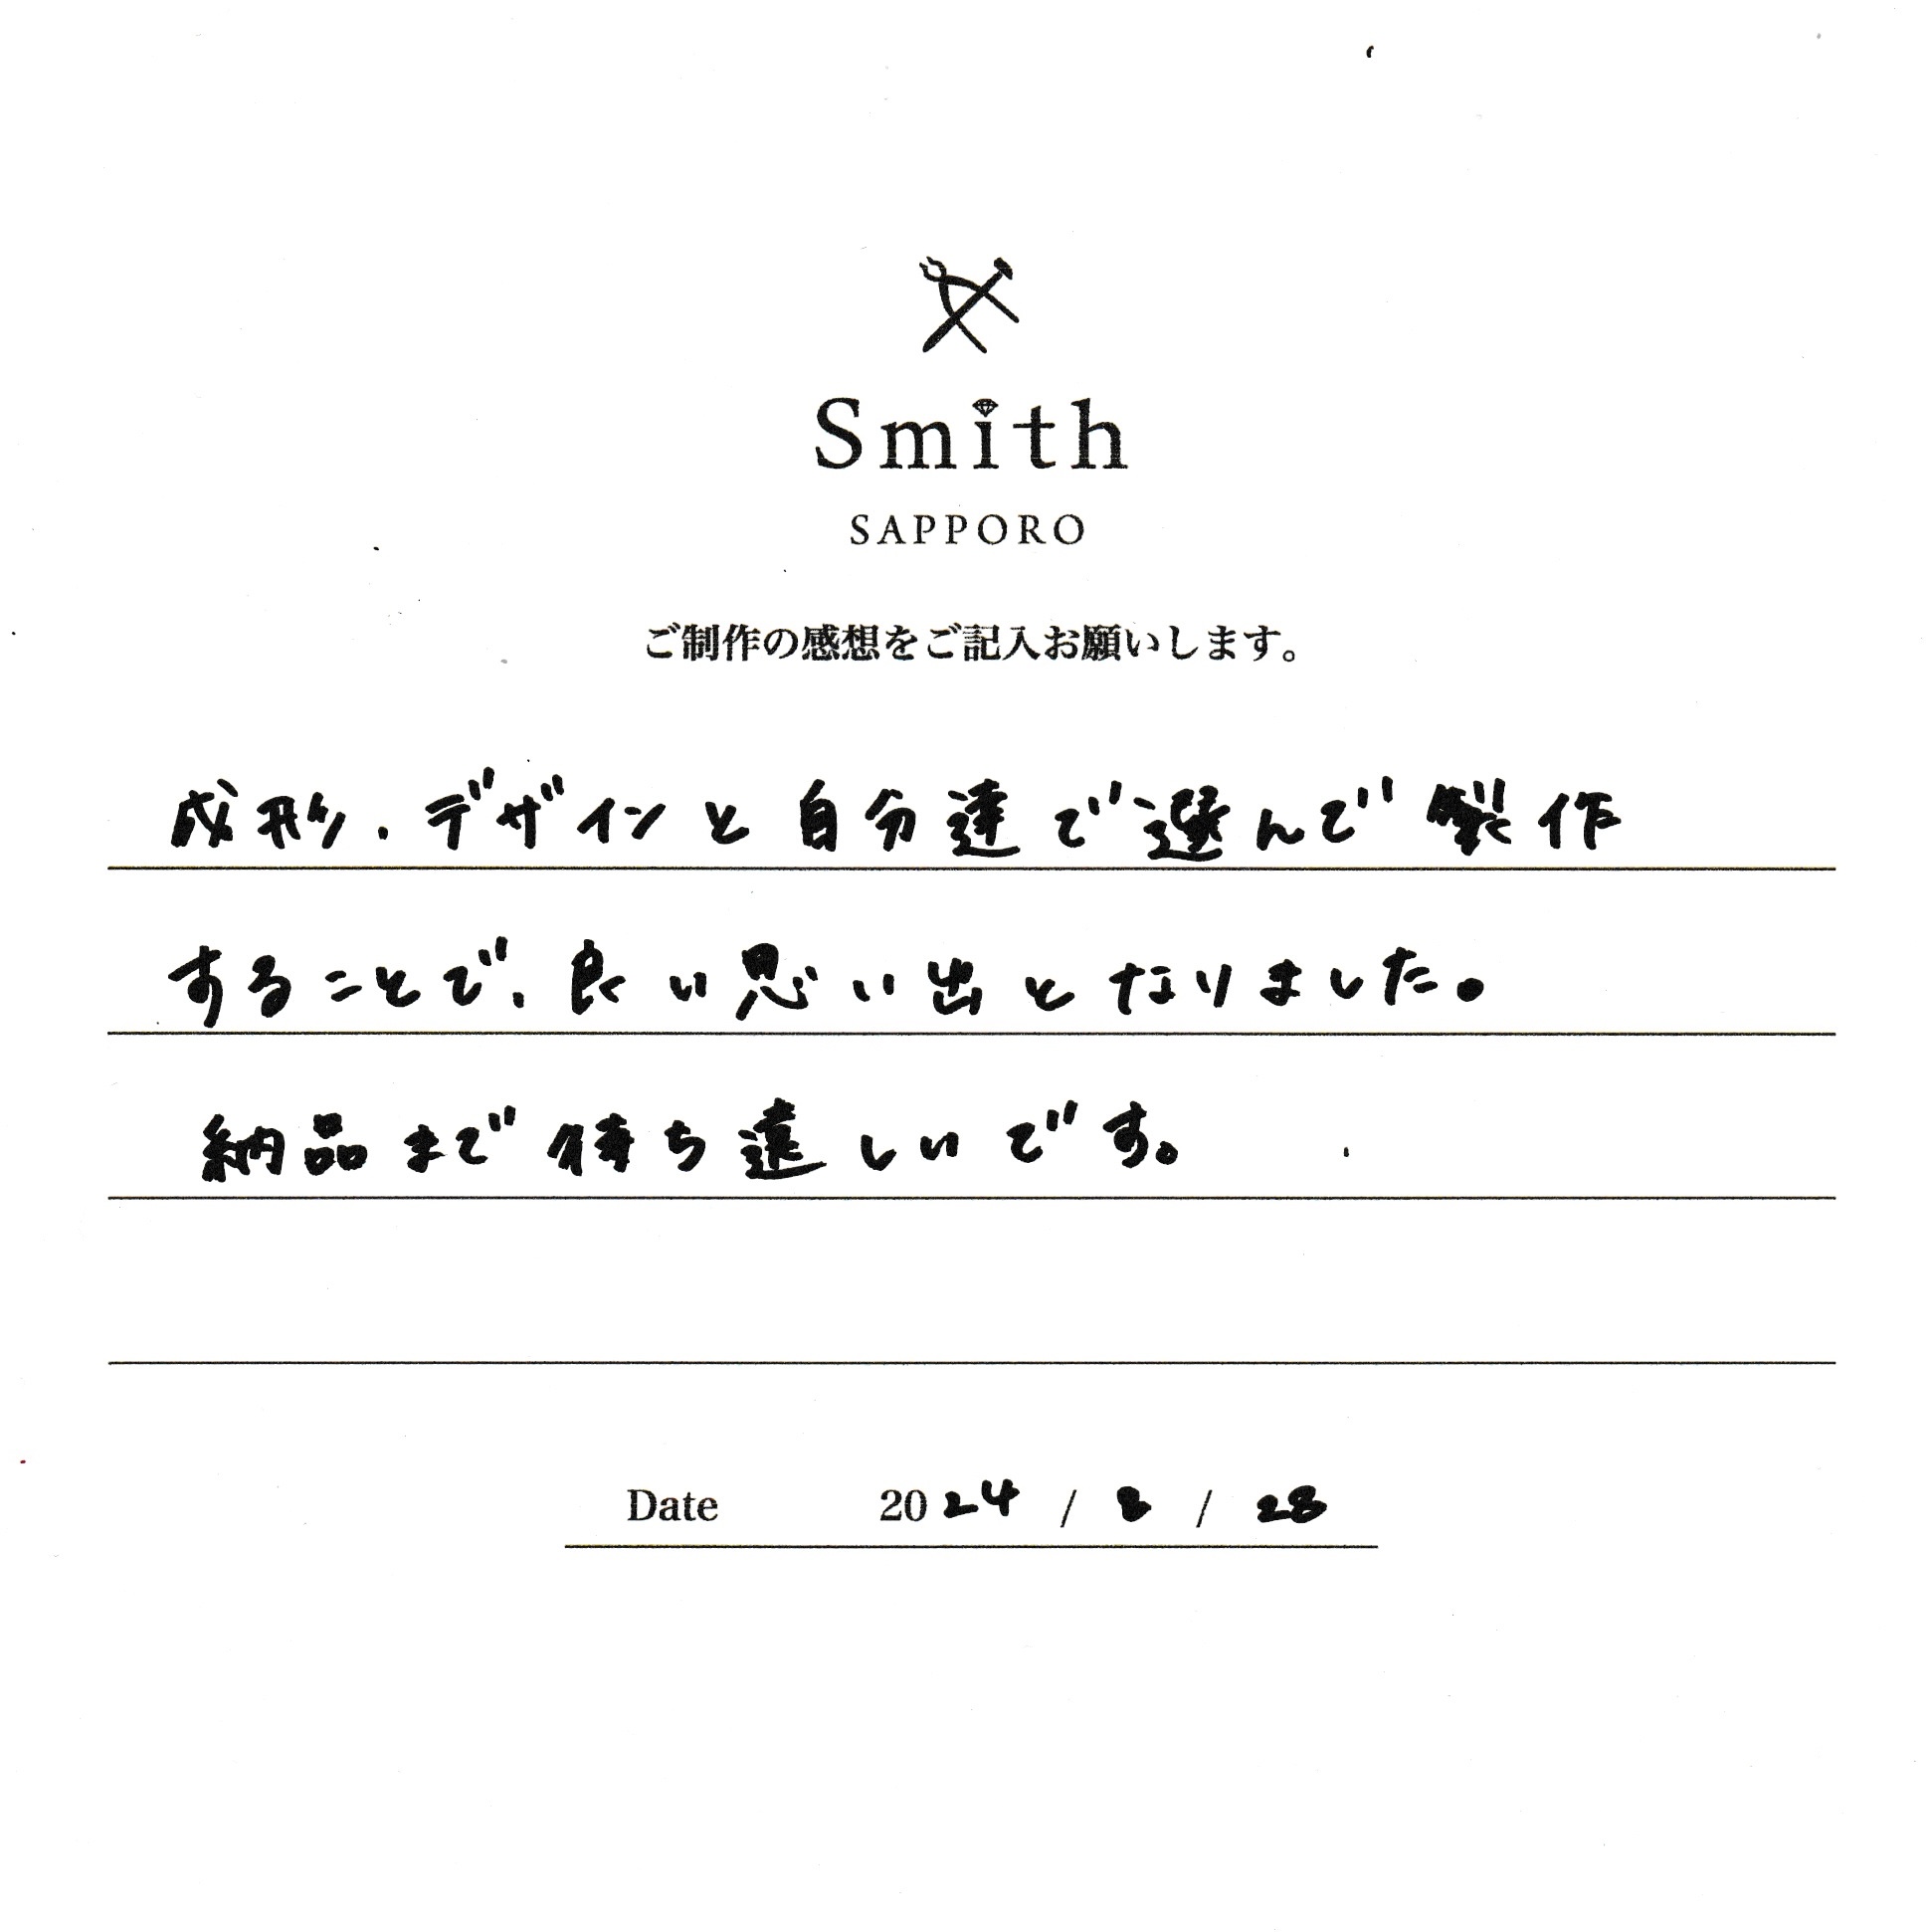 Smith
SAPPORO
ご制作の感想をご記入お願いします。
成形、デザインと自分達で選んで製作
することで、良い思い出となりました。
納品まで待ち遠しいです。
Date 2024 / 8 / 28